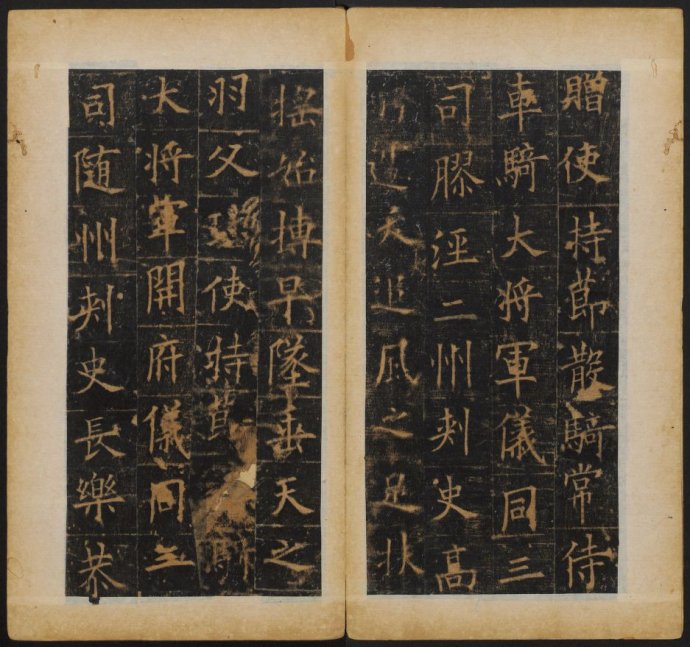 贈使持節散騎常侍
車騎大將軍儀同三
司膠涇二州刺史髙
夭追風之足扶
搖始摶早墜垂天之
羽父使持節
大將軍開府儀同三
司隨州刺史長樂恭